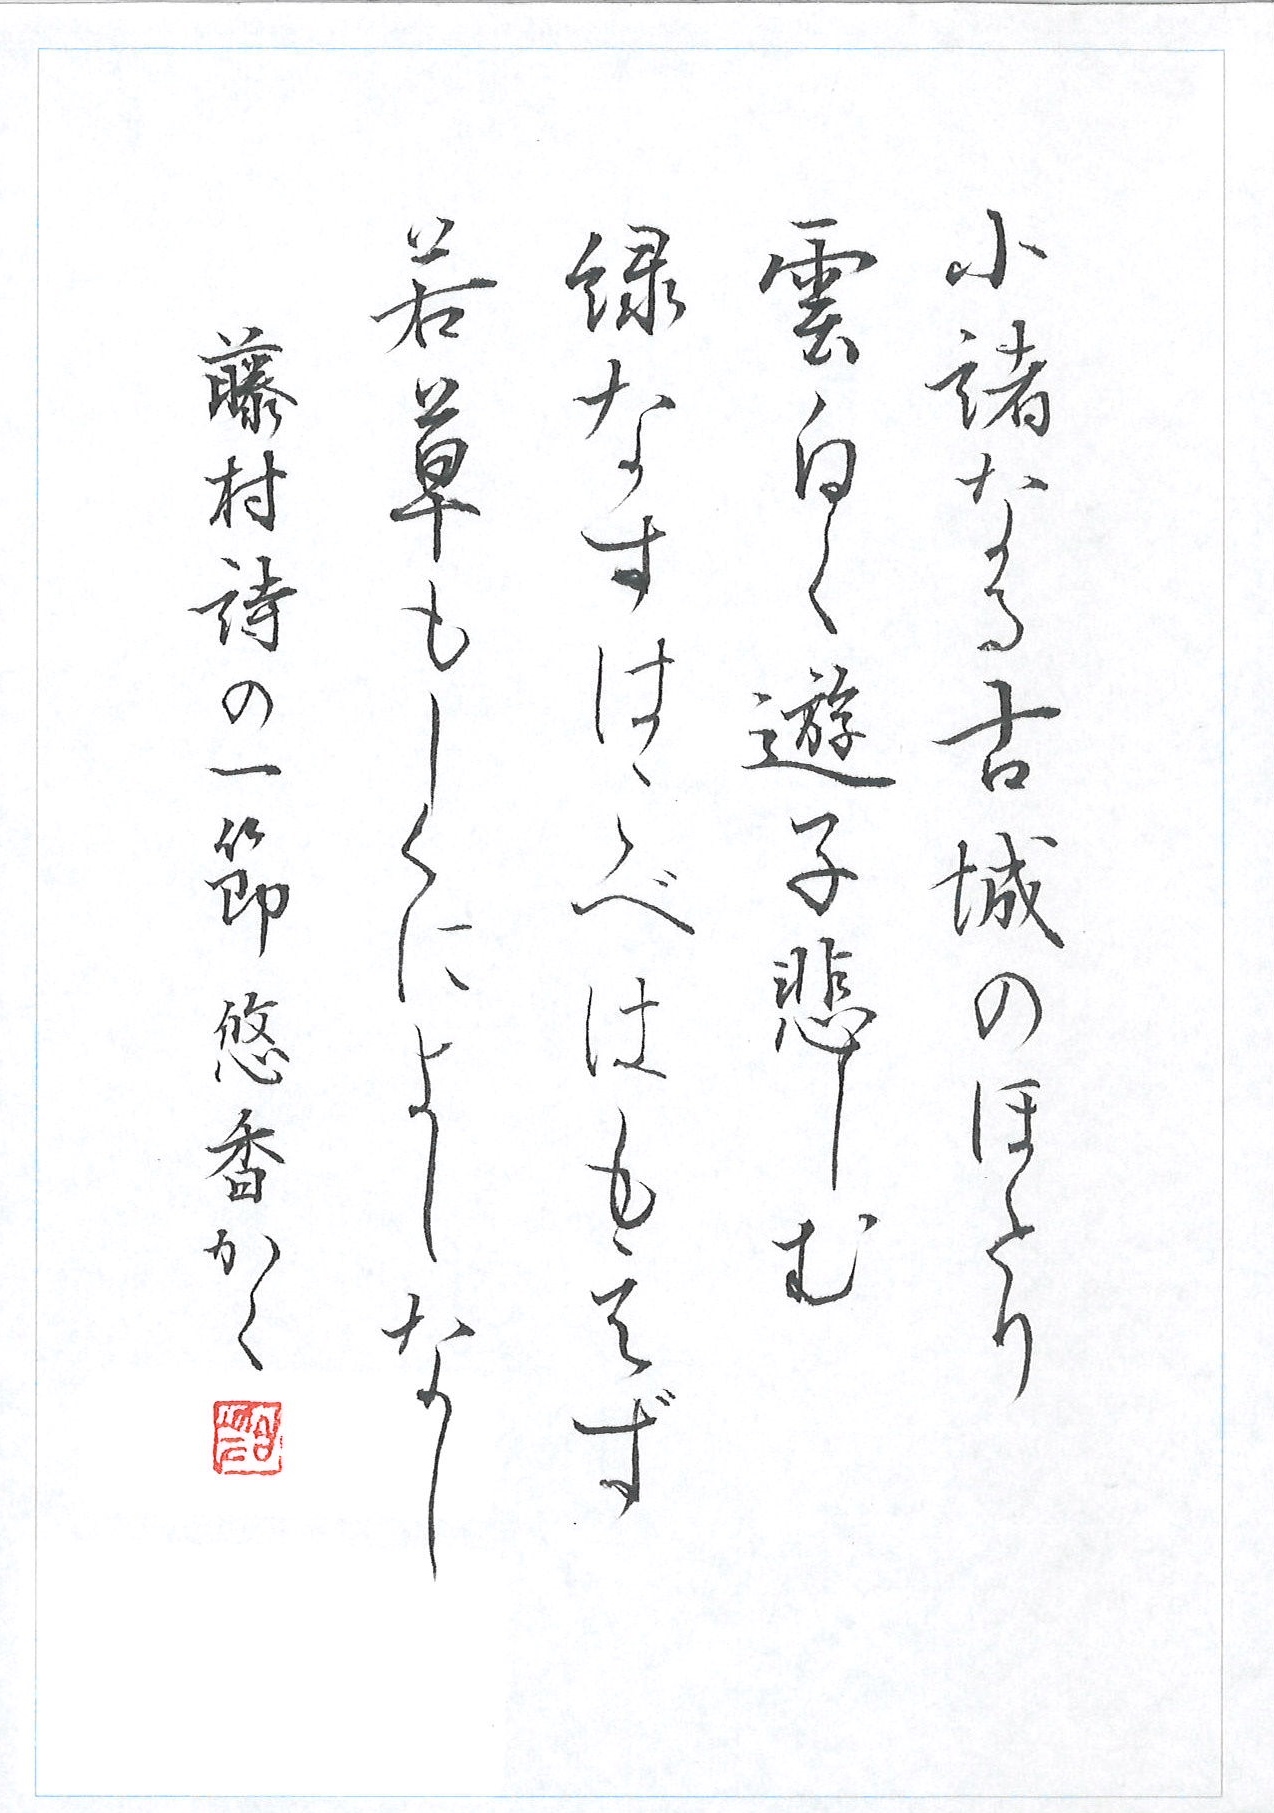 小諸なる古城のほとり
雲白く遊子悲しむ
緑なすはこべはもえず
若草もしくによしなし
藤村詩の一節 悠香かく